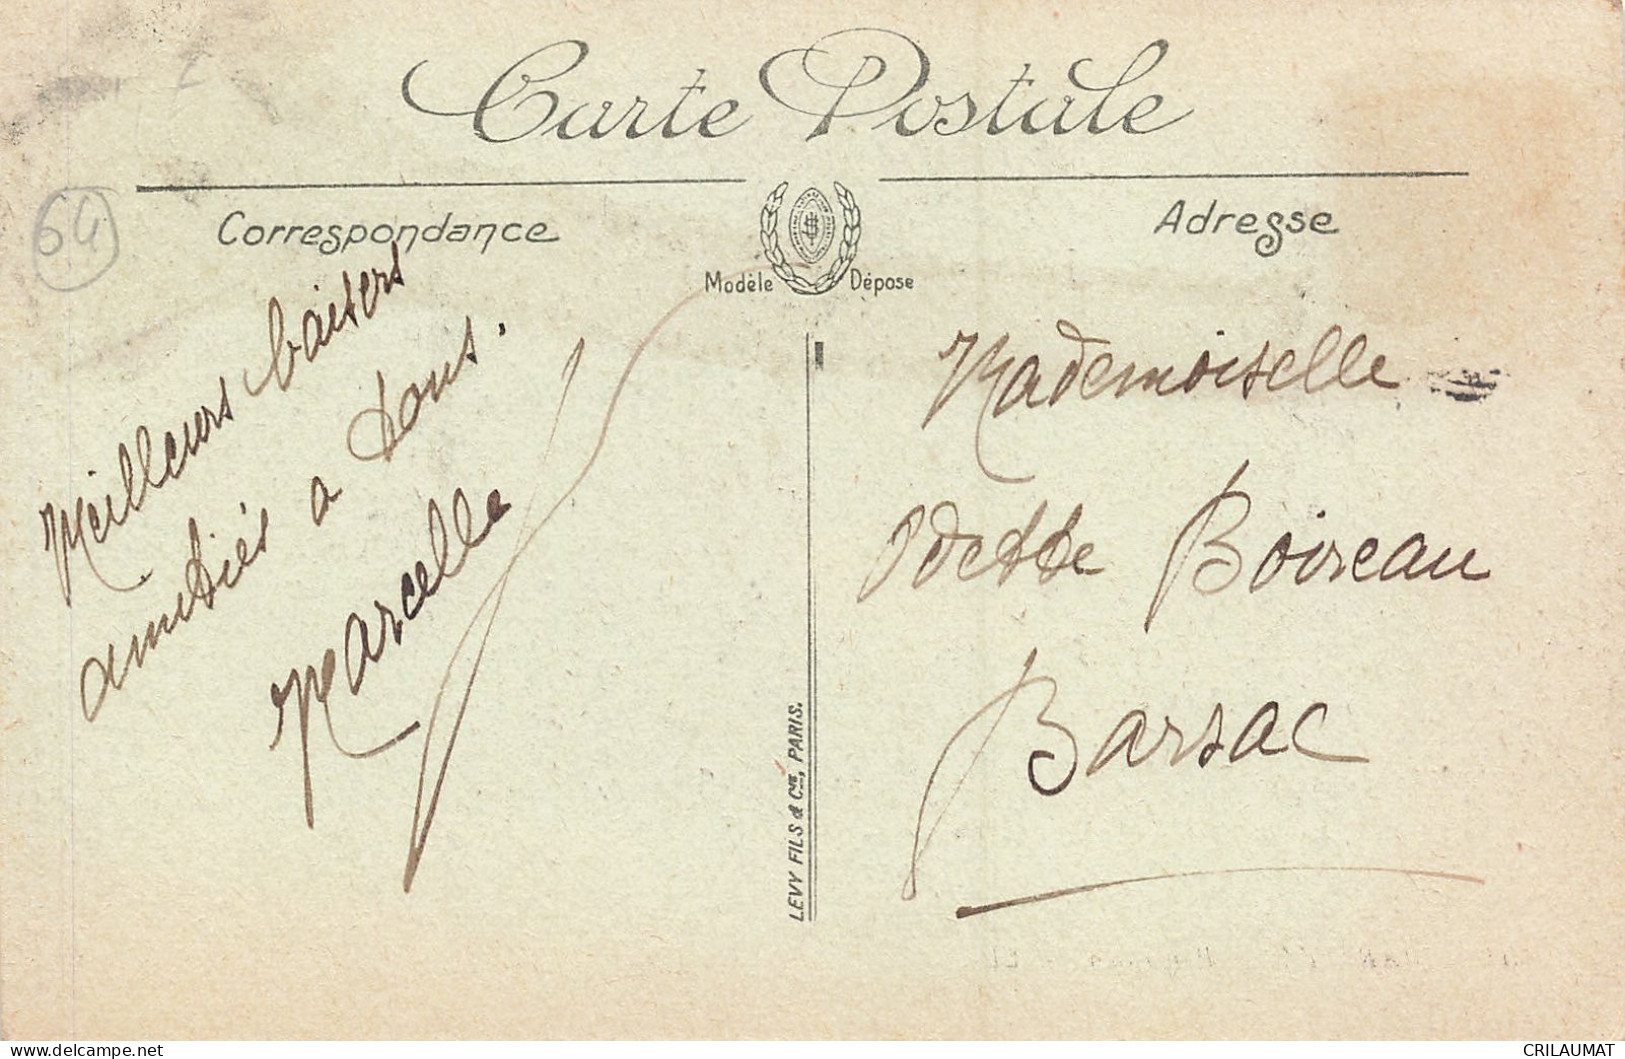 Carte Postale
Correspondance
Adresse
Modèle Déposé
64
Meilleurs baisers
amitiés a tous.
Marcelle
Mademoiselle
Odette Boireau
Barsac
LEVY FILS & Cie, PARIS.
CRILAUMAT